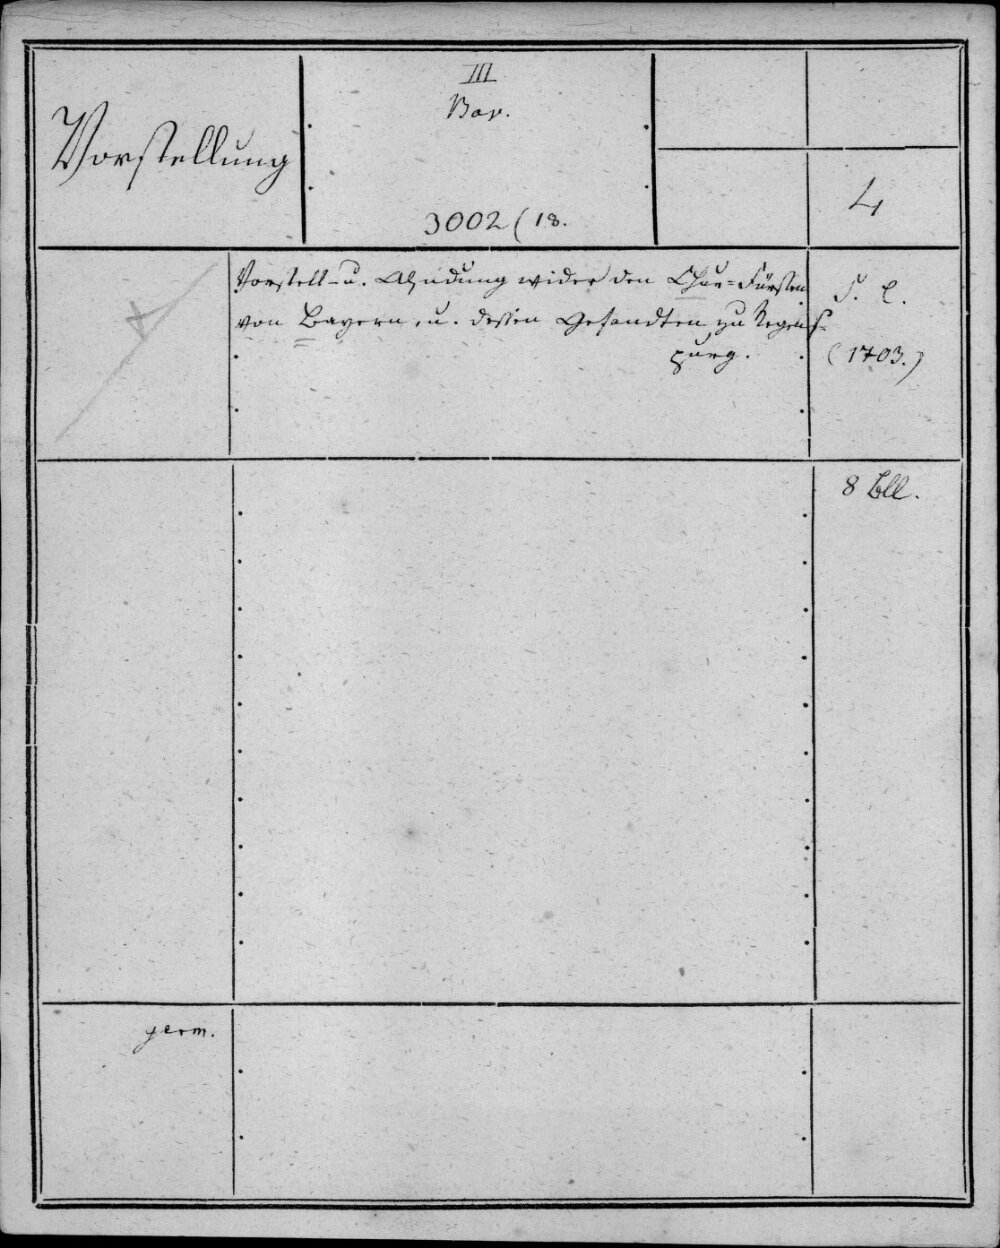 III
Bav.
Vorstellung
3002 (18.
4
Vorstell- u. Ahndung wider den Chur-Fürsten
von Bayern, u. dessen Gesandten zu Regens-
purg.
S. l.
(1703.)
8 Bll.
germ.